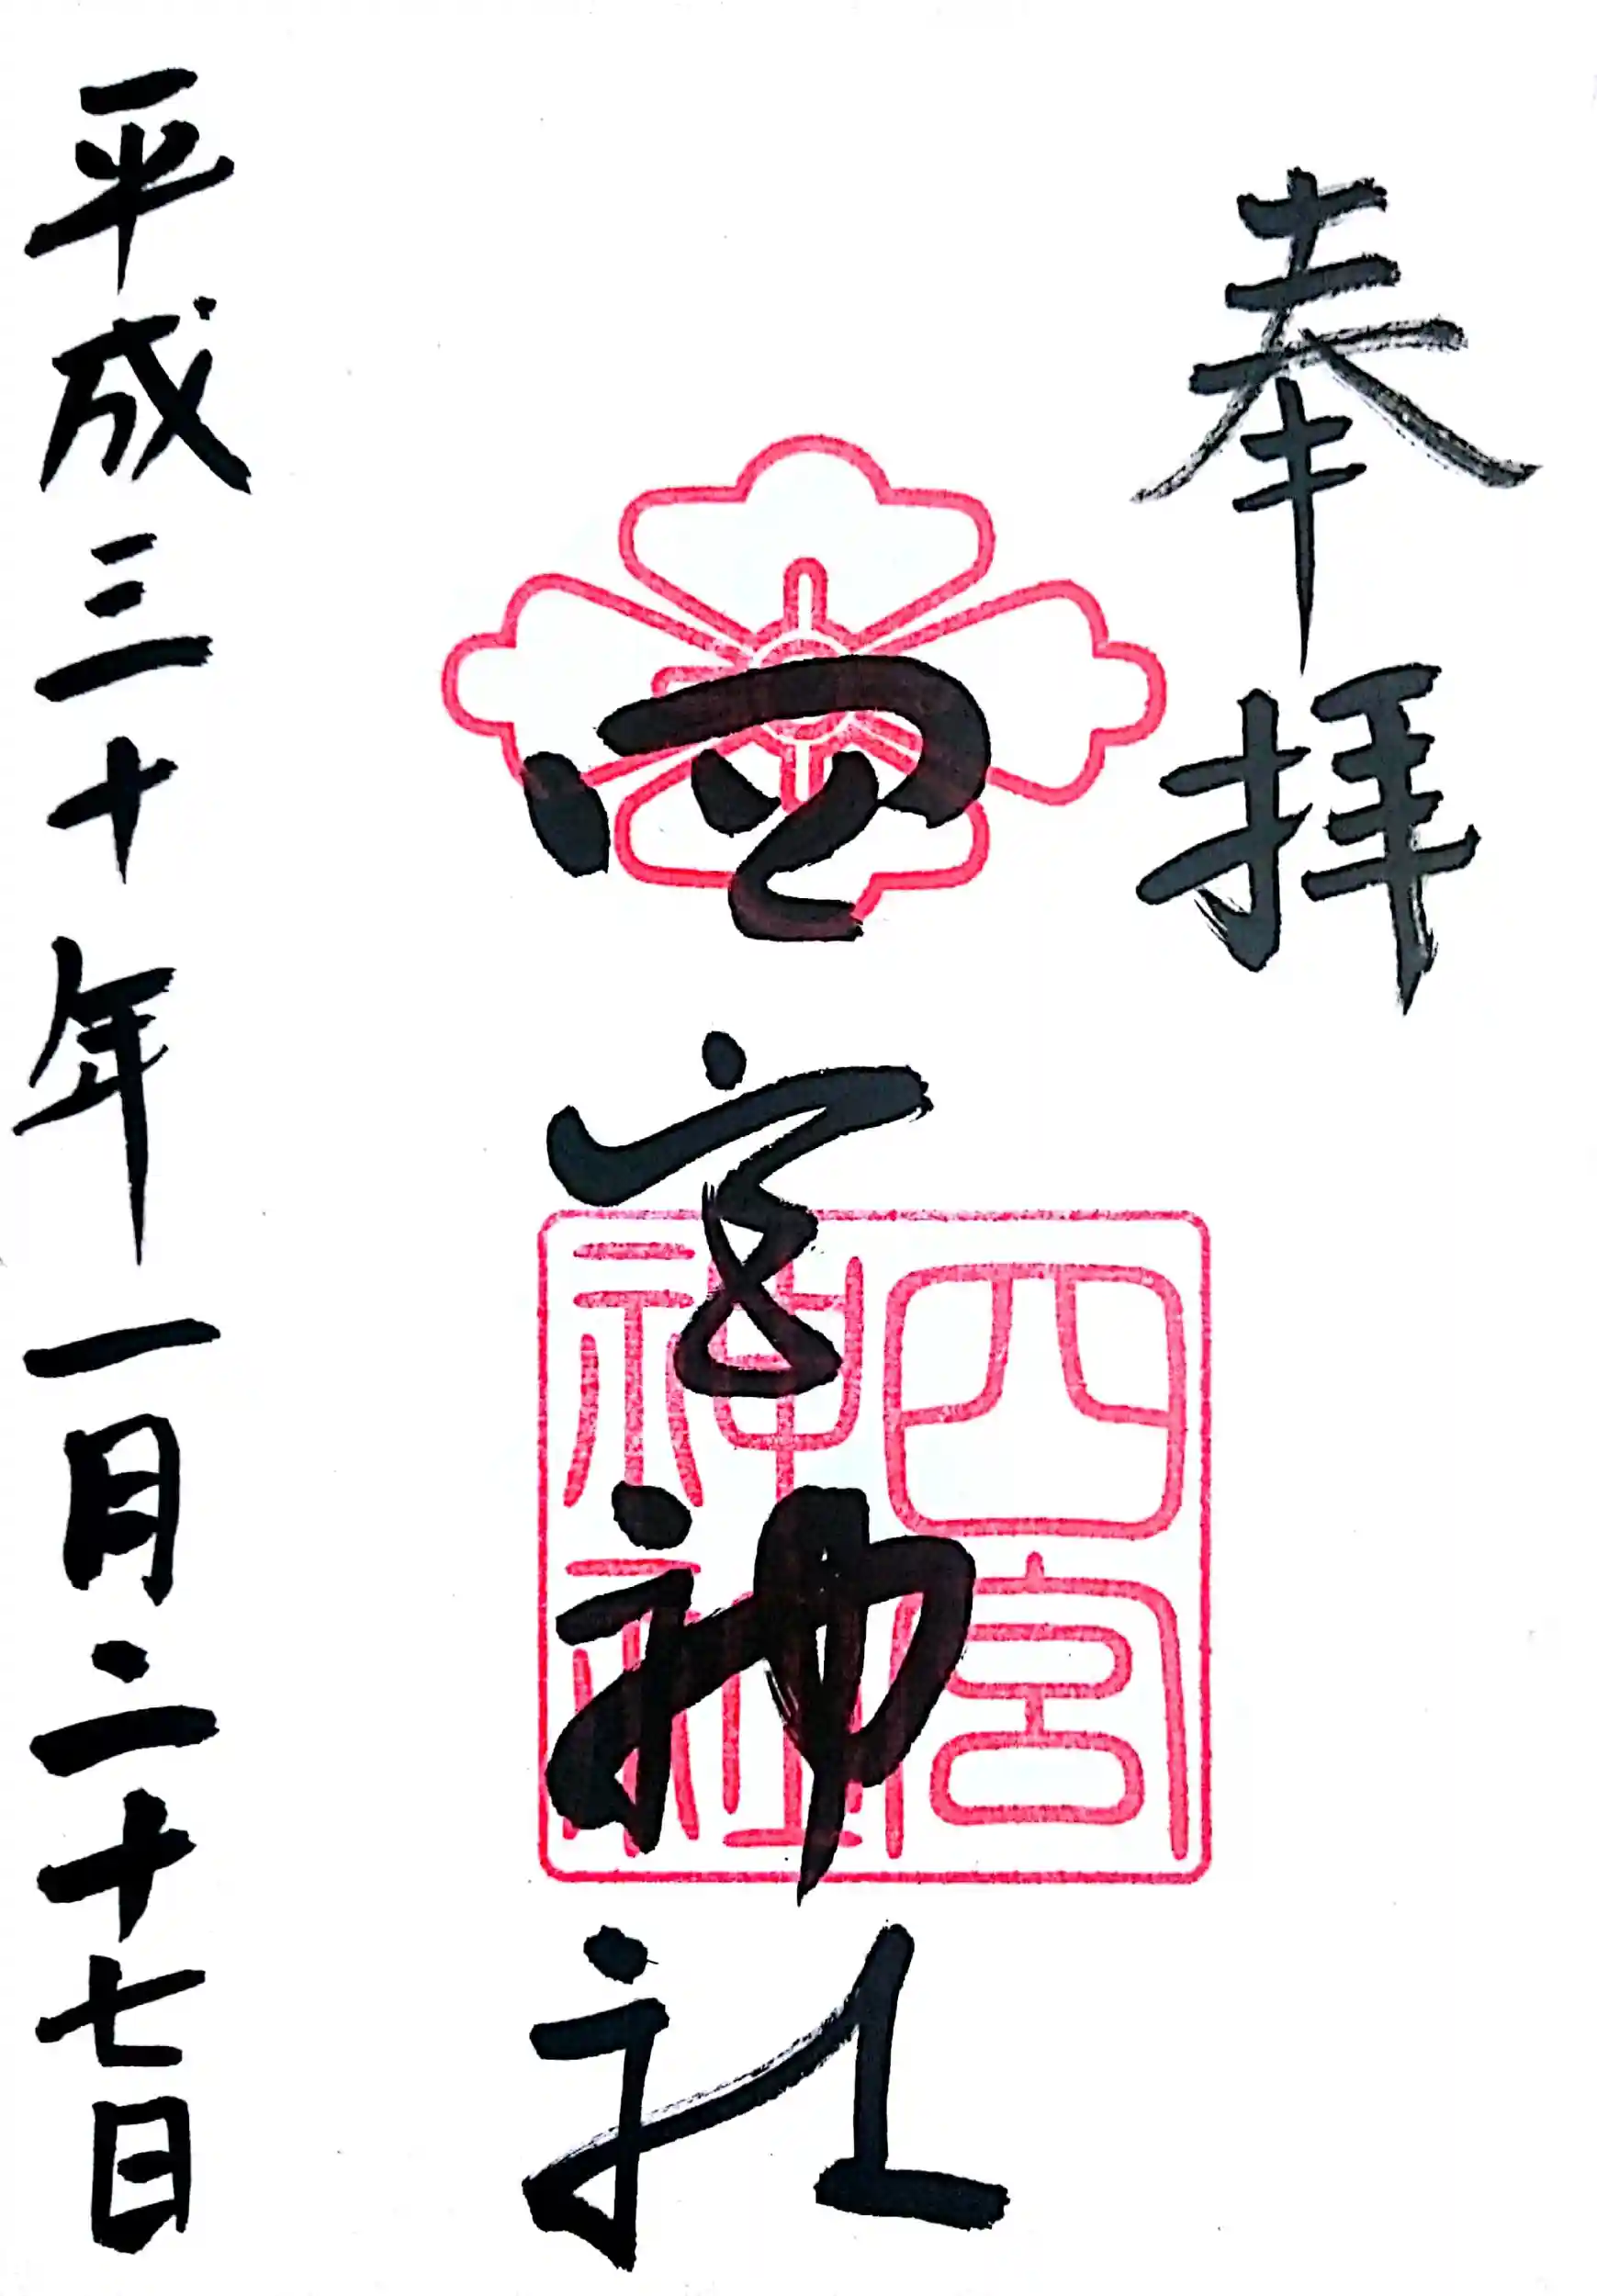 奉拝
四宮神社
四宮
神社
平成三十年一月二十七日